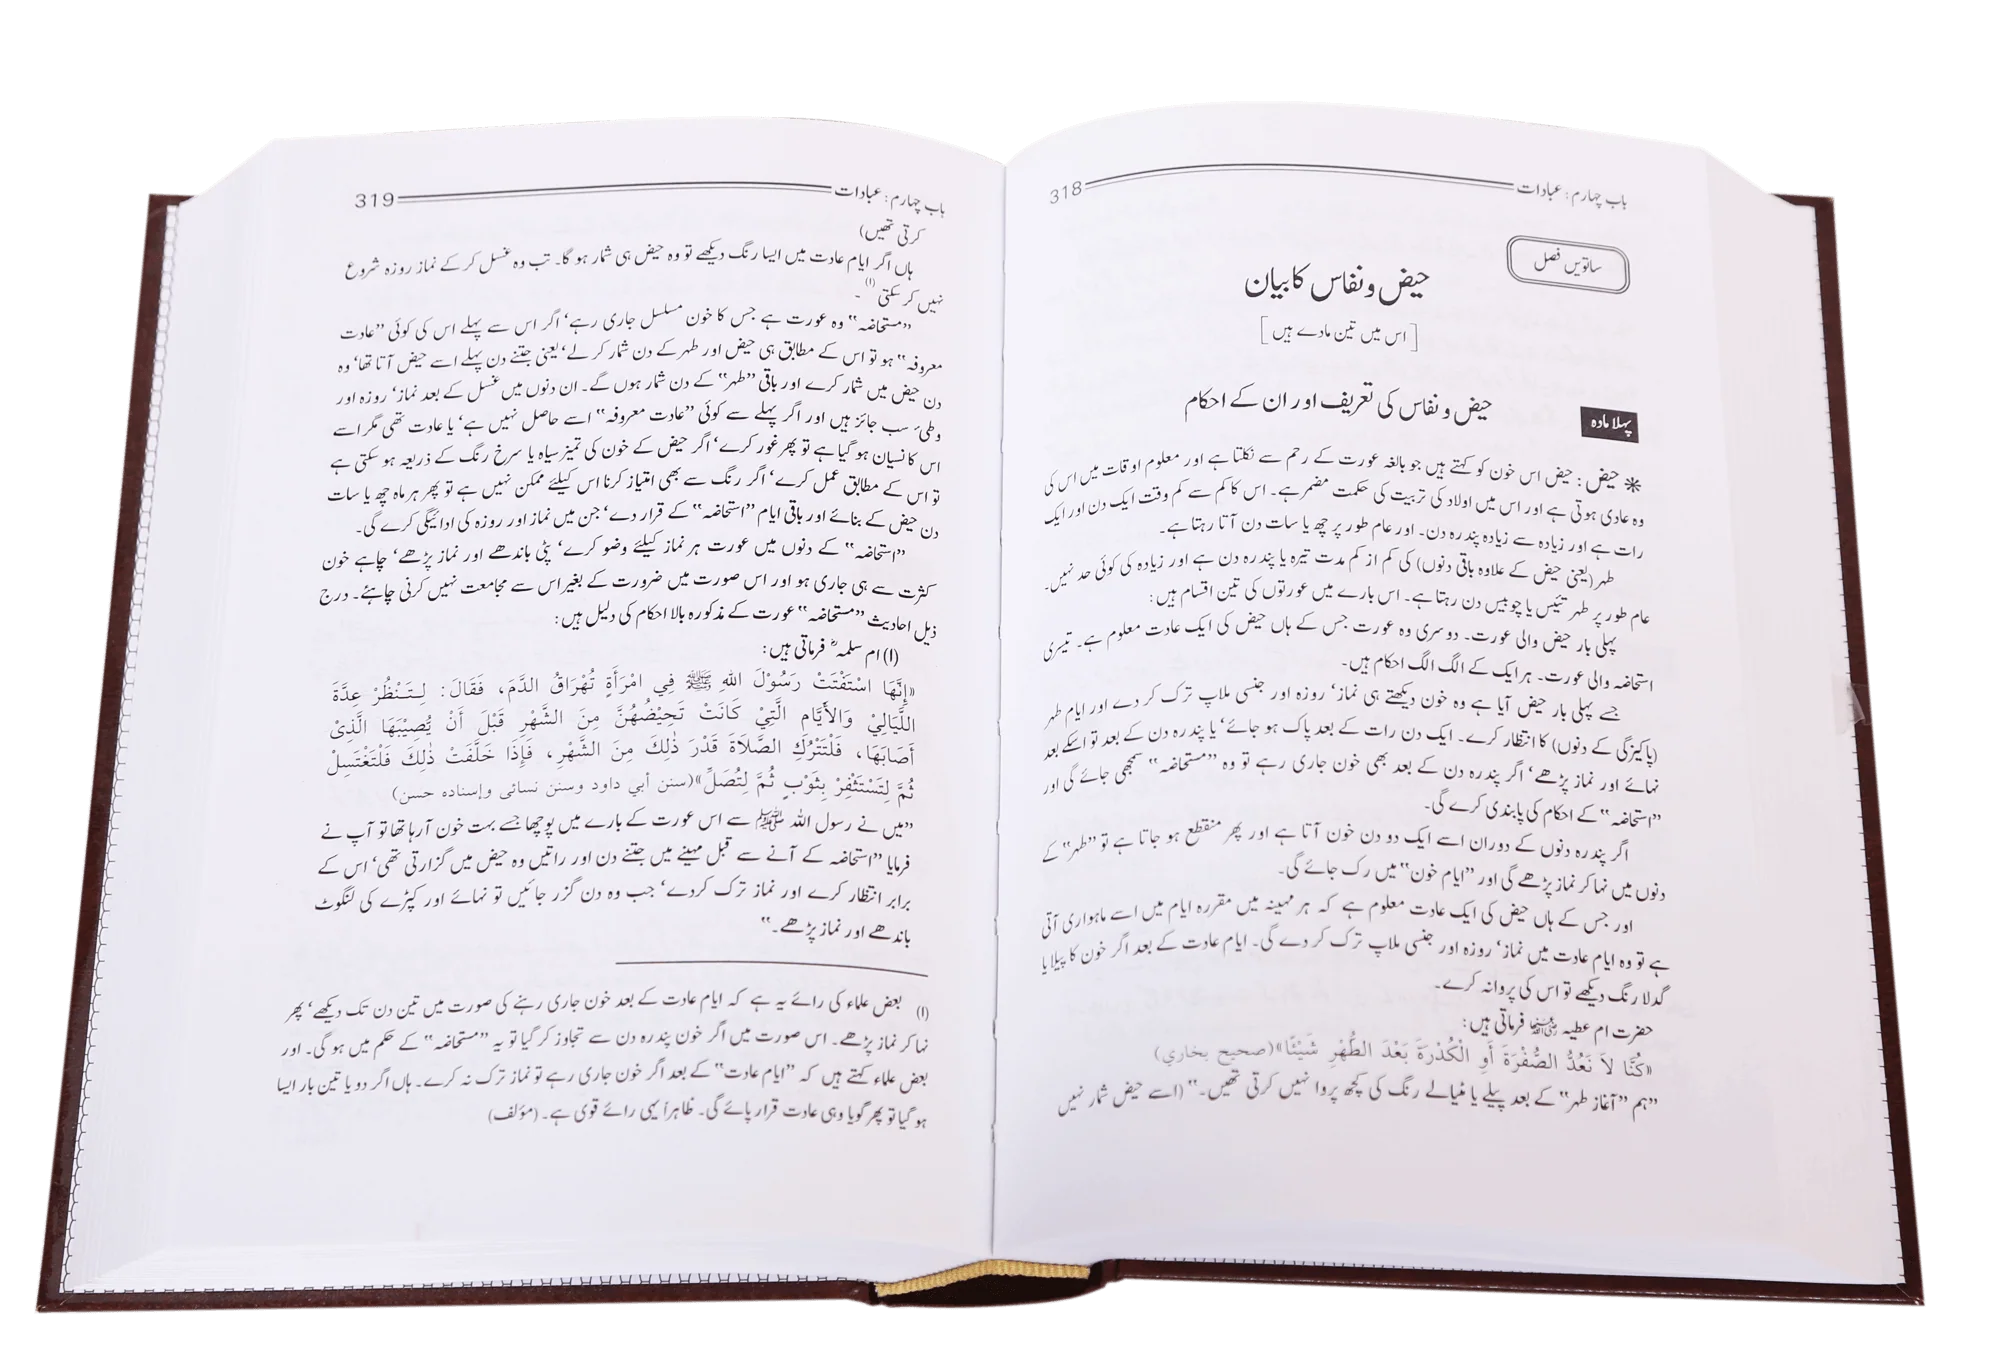 باب چہارم: عبادات 318
ساتویں فصل
حیض و نفاس کا بیان
[اس میں تین مادے ہیں]
پہلا مادہ
حیض و نفاس کی تعریف اور ان کے احکام
* حیض: حیض اس خون کو کہتے ہیں جو بالغہ عورت کے رحم سے نکلتا ہے اور معلوم اوقات میں اس کی
وہ عادی ہوتی ہے اور اس میں اولاد کی تربیت کی حکمت مضمر ہے۔ اس کا کم سے کم وقت ایک دن اور ایک
رات ہے اور زیادہ سے زیادہ پندرہ دن۔ اور عام طور پر چھ یا سات دن آتا رہتا ہے۔
طہر (یعنی حیض کے علاوہ باقی دنوں) کی کم از کم مدت تیرہ یا پندرہ دن ہے اور زیادہ کی کوئی حد نہیں۔
عام طور پر طہر تیئس یا چوبیس دن رہتا ہے۔ اس بارے میں عورتوں کی تین اقسام ہیں:
پہلی بار حیض والی عورت۔ دوسری وہ عورت جس کے ہاں حیض کی ایک عادت معلوم ہے۔ تیسری
استحاضہ والی عورت۔ ہر ایک کے الگ الگ احکام ہیں۔
جسے پہلی بار حیض آیا ہے وہ خون دیکھتے ہی نماز‘ روزہ اور جنسی ملاپ ترک کر دے اور ایام طہر
(پاکیزگی کے دنوں) کا انتظار کرے۔ ایک دن رات کے بعد پاک ہو جائے‘ یا پندرہ دن کے بعد تو اسکے بعد
نہائے اور نماز پڑھے‘ اگر پندرہ دن کے بعد بھی خون جاری رہے تو وہ ”مستحاضہ“ سمجھی جائے گی اور
”استحاضہ“ کے احکام کی پابندی کرے گی۔
اگر پندرہ دنوں کے دوران اسے ایک دو دن خون آتا ہے اور پھر منقطع ہو جاتا ہے تو ”طہر“ کے
دنوں میں نہا کر نماز پڑھے گی اور ”ایام خون“ میں رک جائے گی۔
اور جس کے ہاں حیض کی ایک عادت معلوم ہے کہ ہر مہینہ میں مقررہ ایام میں اسے ماہواری آتی
ہے تو وہ ایام عادت میں نماز‘ روزہ اور جنسی ملاپ ترک کر دے گی۔ ایام عادت کے بعد اگر خون کا پیلا یا
گدلا رنگ دیکھے تو اس کی پروا نہ کرے۔
حضرت ام عطیہ رضی اللہ عنہا فرماتی ہیں:
«كُنَّا لاَ نَعُدُّ الصُّفْرَةَ أَوِ الْكُدْرَةَ بَعْدَ الطُّهْرِ شَيْئًا»(صحيح بخاري)
”ہم ”آغاز طہر“ کے بعد پیلے یا مٹیالے رنگ کی کچھ پروا نہیں کرتی تھیں۔“ (اسے حیض شمار نہیں
باب چہارم: عبادات 319
کرتی تھیں)
ہاں اگر ایام عادت میں ایسا رنگ دیکھے تو وہ حیض ہی شمار ہو گا۔ تب وہ غسل کر کے نماز روزہ شروع
نہیں کر سکتی (۱)۔
”مستحاضہ“ وہ عورت ہے جس کا خون مسلسل جاری رہے‘ اگر اس سے پہلے اس کی کوئی ”عادت
معروفہ“ ہو تو اس کے مطابق ہی حیض اور طہر کے دن شمار کر لے‘ یعنی جتنے دن پہلے اسے حیض آتا تھا‘ وہ
دن حیض میں شمار کرے اور باقی ”طہر“ کے دن شمار ہوں گے۔ ان دنوں میں غسل کے بعد نماز‘ روزہ اور
وطیٔ سب جائز ہیں اور اگر پہلے سے کوئی ”عادت معروفہ“ اسے حاصل نہیں ہے‘ یا عادت تھی مگر اسے
اس کا نسیان ہو گیا ہے تو پھر غور کرے‘ اگر حیض کے خون کی تمیز سیاہ یا سرخ رنگ کے ذریعہ ہو سکتی ہے
تو اس کے مطابق عمل کرے‘ اگر رنگ سے بھی امتیاز کرنا اس کیلئے ممکن نہیں ہے تو پھر ہر ماہ چھ یا سات
دن حیض کے بنائے اور باقی ایام ”استحاضہ“ کے قرار دے‘ جن میں نماز اور روزہ کی ادائیگی کرے گی۔
”استحاضہ“ کے دنوں میں عورت ہر نماز کیلئے وضو کرے‘ پٹی باندھے اور نماز پڑھے‘ چاہے خون
کثرت سے ہی جاری ہو اور اس صورت میں ضرورت کے بغیر اس سے مجامعت نہیں کرنی چاہئے۔ درج
ذیل احادیث ”مستحاضہ“ عورت کے مذکورہ بالا احکام کی دلیل ہیں:
(۱) ام سلمہ ؓ فرماتی ہیں:
«إِنَّهَا اسْتَفْتَتْ رَسُوْلَ اللهِ ﷺ فِي امْرَأَةٍ تُهْرَاقُ الدَّمَ، فَقَالَ: لِتَنْظُرْ عِدَّةَ
اللَّيَالِيْ وَالأَيَّامِ الَّتِيْ كَانَتْ تَحِيْضُهُنَّ مِنَ الشَّهْرِ قَبْلَ أَنْ يُصِيْبَهَا الَّذِيْ
أَصَابَهَا، فَلْتَتْرُكِ الصَّلاَةَ قَدْرَ ذٰلِكَ مِنَ الشَّهْرِ، فَإِذَا خَلَّفَتْ ذٰلِكَ فَلْتَغْتَسِلْ
ثُمَّ لِتَسْتَثْفِرْ بِثَوْبٍ ثُمَّ لِتُصَلِّ»(سنن أبي داود وسنن نسائى وإسناده حسن)
”میں نے رسول اللہ ﷺ سے اس عورت کے بارے میں پوچھا جسے بہت خون آ رہا تھا تو آپ نے
فرمایا ”استحاضہ کے آنے سے قبل مہینے میں جتنے دن اور راتیں وہ حیض میں گزارتی تھی‘ اس کے
برابر انتظار کرے اور نماز ترک کر دے‘ جب وہ دن گزر جائیں تو نہائے اور کپڑے کی لنگوٹ
باندھے اور نماز پڑھے۔“
(۱) بعض علماء کی رائے یہ ہے کہ ایام عادت کے بعد خون جاری رہنے کی صورت میں تین دن تک دیکھے‘ پھر
نہا کر نماز پڑھے۔ اس صورت میں اگر خون پندرہ دن سے تجاوز کر گیا تو یہ ”مستحاضہ“ کے حکم میں ہو گی۔ اور
بعض علماء کہتے ہیں کہ ”ایام عادت“ کے بعد اگر خون جاری رہے تو نماز ترک نہ کرے۔ ہاں اگر دو یا تین بار ایسا
ہو گیا تو پھر گویا وہی عادت قرار پائے گی۔ ظاہراً یہی رائے قوی ہے۔ (مؤلف)